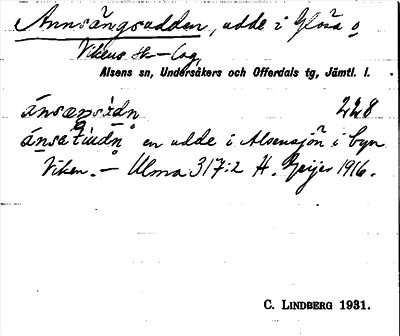 Annsängsudden, udde i Glösa o
Vikens sk–lag,
Alsens sn, Undersåkers och Offerdals tg, Jämtl. l.
ánsæŋsùdn 228
en udde i Alsensjön i byn
Viken. – Ulma 317:2 H. Geijer 1916.
C. LINDBERG 1931.